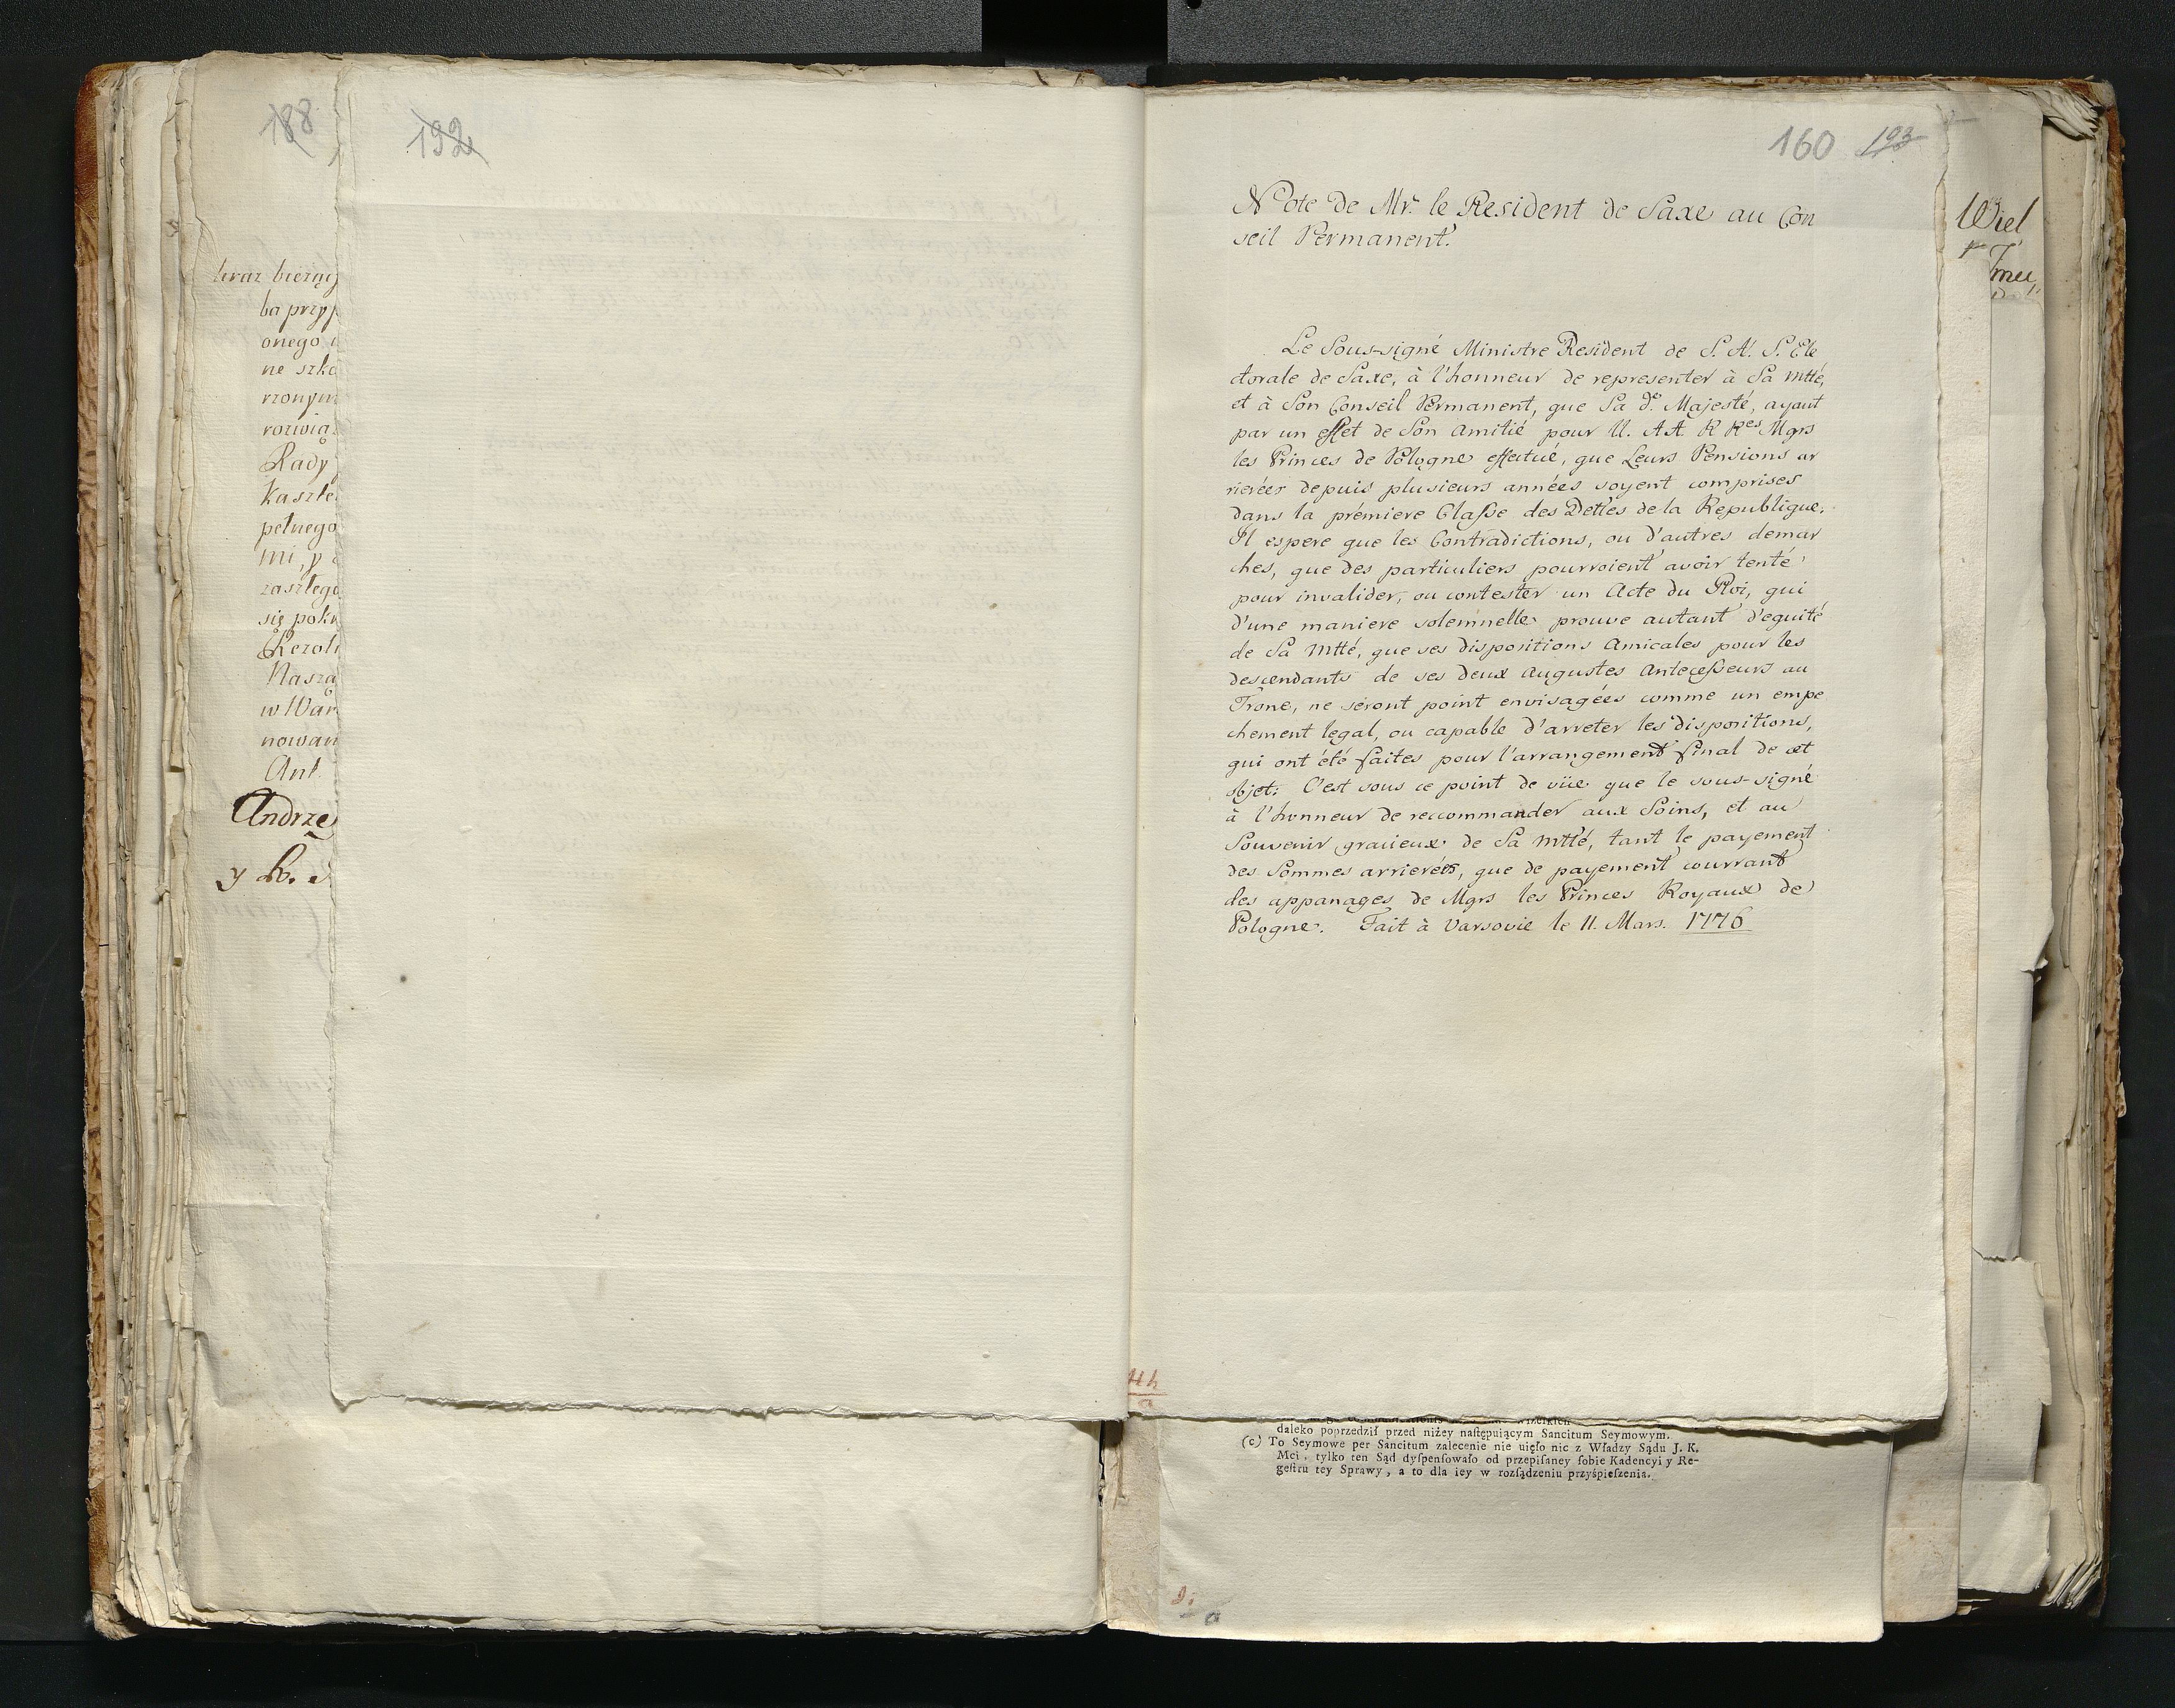 188
192
160 193
kraz bieżący
ba przyp
onego
ne szko
rzonym
rozwią
Rady
Kaszte
pełnego
mi, y
zaszłego
się poka
Rezol
Nasza
w War
nowan
Ant
Andrze
y
Note de Mr. le Resident de Saxe au Con
seil Permanent.
Le Sous-signé Ministre Resident de S. A. S. Ele
ctorale de Saxe, à l'honneur de representer à Sa Mtté,
et à Son Conseil Permanent, que Sa de. Majesté, ayant
par un effet de Son Amitié pour LL. AA. R Res Mgrs
les Princes de Pologne effectué, que Leurs Pensions ar
rierées depuis plusieurs années soyent comprises
dans la prémiere Classe des Dettes de la Republique.
Il espere que les Contradictions, ou d'autres demar
ches, que des particuliers pourroient avoir tenté
pour invalider, ou contester un Acte du Roi, qui
d'une maniere solemnelle prouve autant d'equité
de Sa Mtté, que ses dispositions Amicales pour les
descendants de ses deux Augustes Antecesseurs au
Trone, ne seront point envisagées comme un empe
chement legal, ou capable d'arreter les dispositions,
qui ont été faites pour l'arrangement final de cet
objet: C'est sous ce point de vüe que le sous-signé
à l'honneur de reccommander aux Soins, et au
Souvenir gracieux de Sa Mtté, tant le payement
des Sommes arrierées, que de payement courrant
des appanages de Mgrs les Princes Royaux de
Pologne. Fait à Varsovie le 11. Mars. 1776
Wiel
Jmu
daleko poprzedził przed niżey następuiącym Sancitum Seymowym.
(c) To Seymowe per Sancitum zalecenie nie uięło nic z Władzy Sądu J. K.
Mci, tylko ten Sąd dyspensowało od przepisaney sobie Kadencyi y Re-
gestru tey Sprawy, a to dla iey w rozsądzeniu przyśpieszenia.